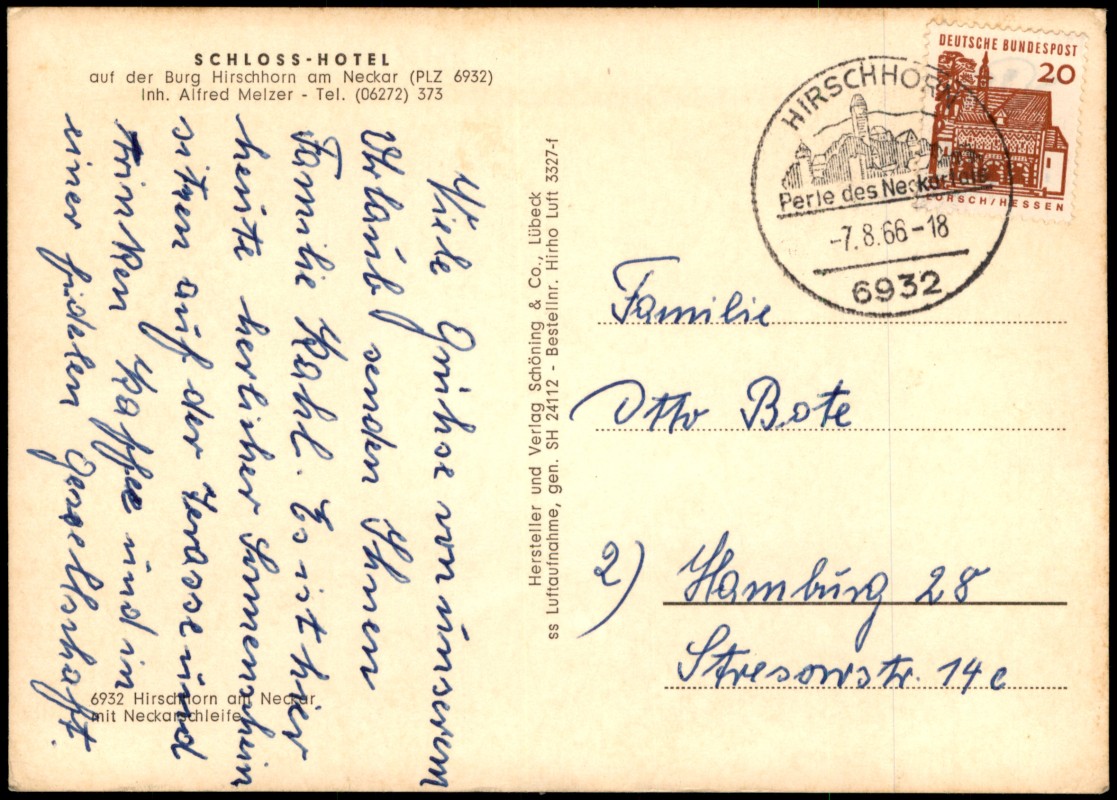 SCHLOSS-HOTEL
auf der Burg Hirschhorn am Neckar (PLZ 6932)
Inh. Alfred Melzer - Tel. (06272) 373
Viele Grüße von unserem
Urlaub senden Ihnen
Familie Kahl. Es ist hier
heute herlicher Sonnenschein
sitzen auf der Terasse und
trinken Kaffee und in
einer fidelen Gesellschaft.
6932 Hirschhorn am Neckar
mit Neckarschleife
Hersteller und Verlag Schöning & Co., Lübeck
ss Luftaufnahme, gen. SH 24112 - Bestellnr. Hirho Luft 3327-f
DEUTSCHE BUNDESPOST
20
LORSCH/HESSEN
HIRSCHHORN
Perle des Neckartals
-7.8.66-18
6932
Familie
Otto Bote
2) Hamburg 28
Stresowstr. 14c